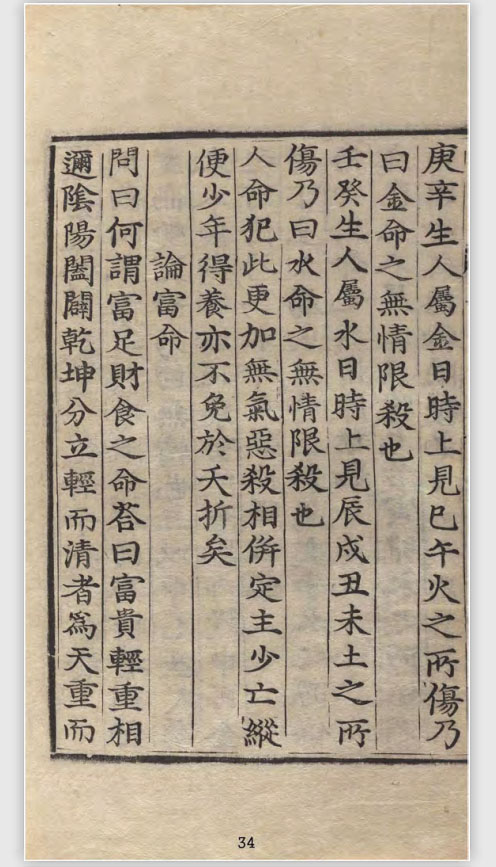 庚辛生人屬金日時上見巳午火之所傷乃
曰金命之無情限殺也
壬癸生人屬水日時上見辰戌丑未土之所
傷乃曰水命之無情限殺也
人命犯此更加無氣惡殺相併定主少亡縱
便少年得養亦不免於夭折矣
論富命
問曰何謂富足財食之命荅曰富貴輕重相
邇陰陽闔闢乾坤分立輕而清者爲天重而
34